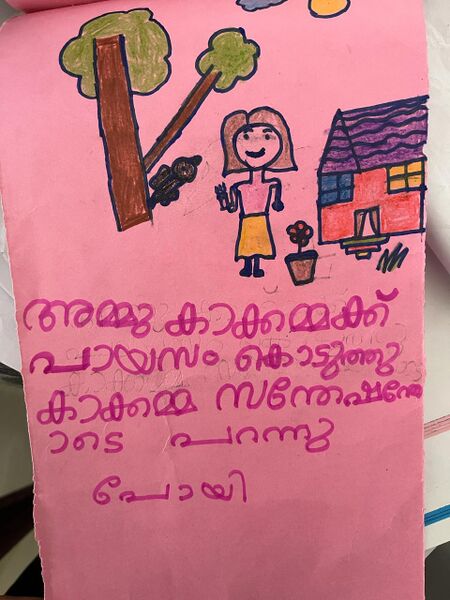 അമ്മു കാക്കമ്മക്ക്
പായസം കൊടുത്തു
കാക്കമ്മ സന്തോഷത്തോ
ടെ പറന്നു
പോയി